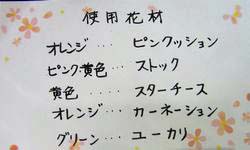 使用花材
オレンジ・・・ピンクッション
ピンク・黄色・・・ストック
黄色・・・・スターチース
オレンジ・・・カーネーション
グリーン・・・ユーカリ